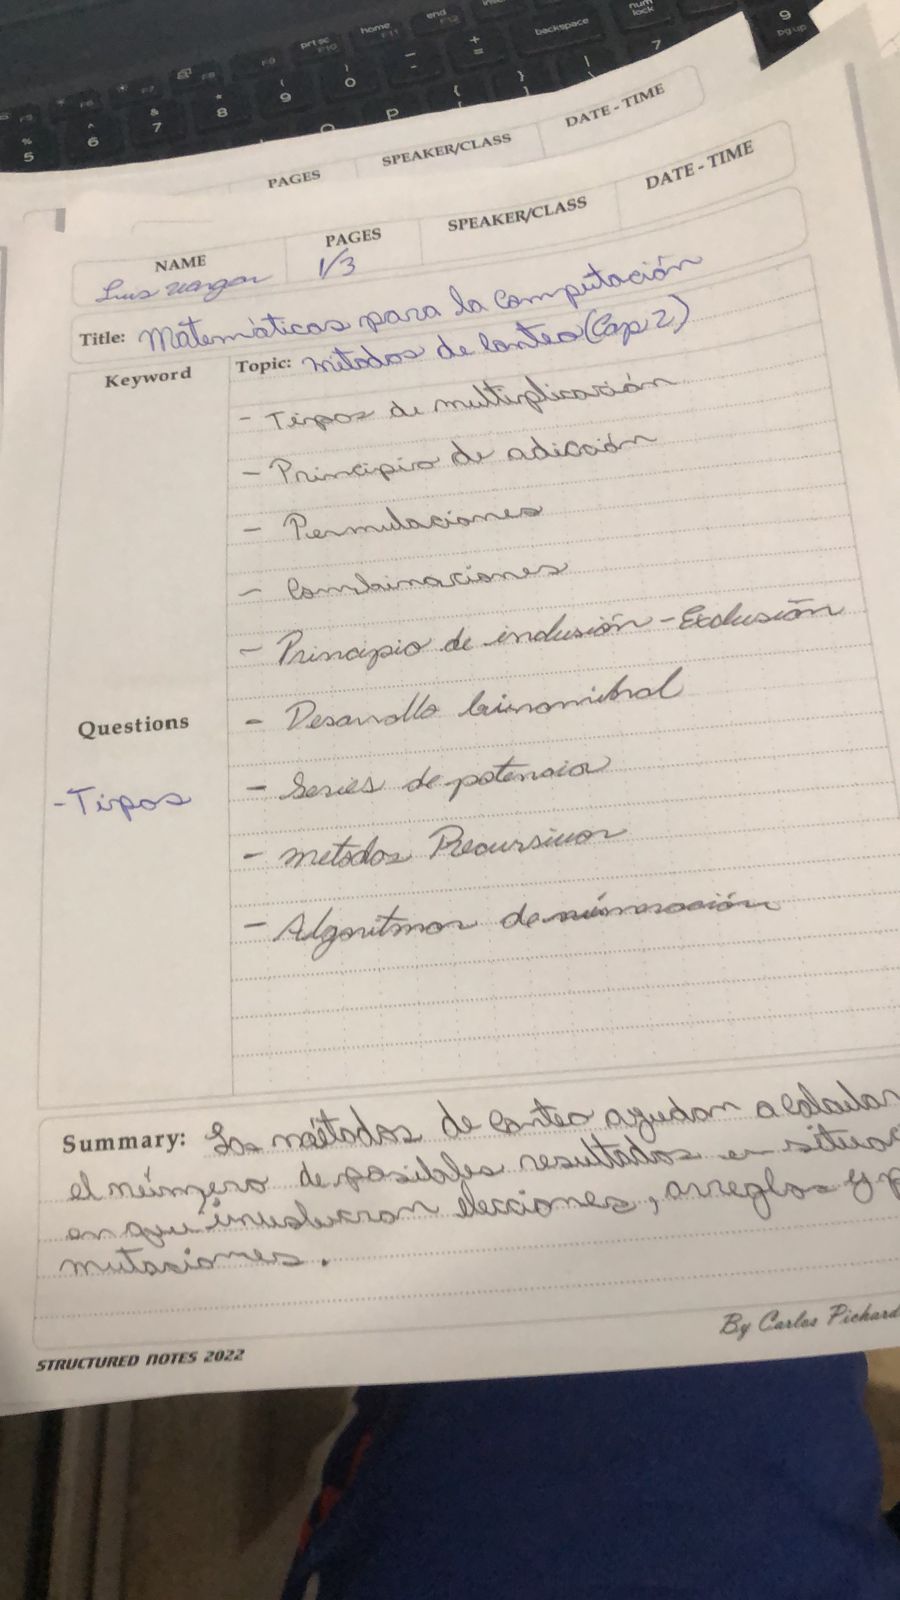 prt sc F10
home F11
end F12
F5 F6 F7 F8 F9
% 5
^ 6
& 7
* 8
( 9
) 0
- 
+ =
backspace
num lock
7
9 pg up
O P { }
PAGES SPEAKER/CLASS DATE - TIME
NAME PAGES SPEAKER/CLASS DATE - TIME
Luis Vargas 1/3
Title: Matemáticas para la Computación
Keyword
Topic: métodos de Conteo (Cap 2)
- Tipos de multiplicación
- Principio de adicción
- Permutaciones
- Combinaciones
- Principio de inclusión - Exclusión
Questions
- Desarrollo binomibal
- Tipos
- Series de potencia
- metodos Recursivos
- Algoritmos de númeración
Summary: Los métodos de Conteo ayudan a calcular
el número de posibles resultados en situac
en que involucran elecciones, arreglos y p
mutaciones.
By Carlos Pichard
STRUCTURED NOTES 2022